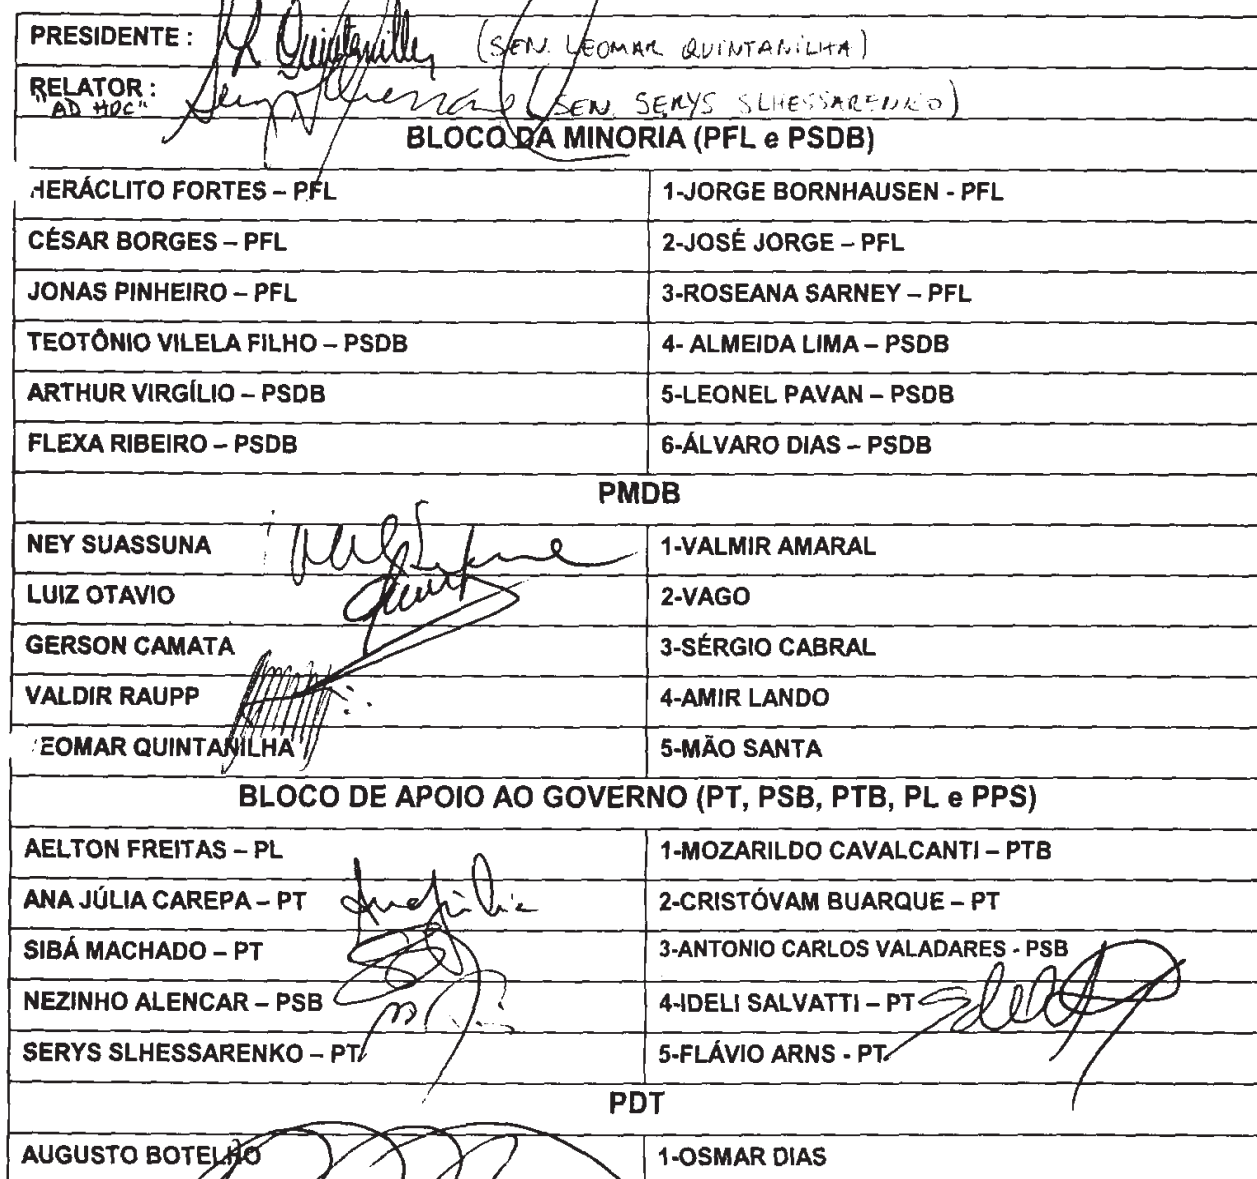 PRESIDENTE : (SEN. LEOMAR QUINTANILHA)
RELATOR : (SEN. SERYS SLHESSARENKO)
"AD HOC"
BLOCO DA MINORIA (PFL e PSDB)
HERÁCLITO FORTES – PFL 1-JORGE BORNHAUSEN - PFL
CÉSAR BORGES – PFL 2-JOSÉ JORGE – PFL
JONAS PINHEIRO – PFL 3-ROSEANA SARNEY – PFL
TEOTÔNIO VILELA FILHO – PSDB 4- ALMEIDA LIMA – PSDB
ARTHUR VIRGÍLIO – PSDB 5-LEONEL PAVAN – PSDB
FLEXA RIBEIRO – PSDB 6-ÁLVARO DIAS – PSDB
PMDB
NEY SUASSUNA 1-VALMIR AMARAL
LUIZ OTAVIO 2-VAGO
GERSON CAMATA 3-SÉRGIO CABRAL
VALDIR RAUPP 4-AMIR LANDO
EOMAR QUINTANILHA 5-MÃO SANTA
BLOCO DE APOIO AO GOVERNO (PT, PSB, PTB, PL e PPS)
AELTON FREITAS – PL 1-MOZARILDO CAVALCANTI – PTB
ANA JÚLIA CAREPA – PT 2-CRISTÓVAM BUARQUE – PT
SIBÁ MACHADO – PT 3-ANTONIO CARLOS VALADARES - PSB
NEZINHO ALENCAR – PSB 4-IDELI SALVATTI – PT
SERYS SLHESSARENKO – PT 5-FLÁVIO ARNS - PT
PDT
AUGUSTO BOTELHO 1-OSMAR DIAS